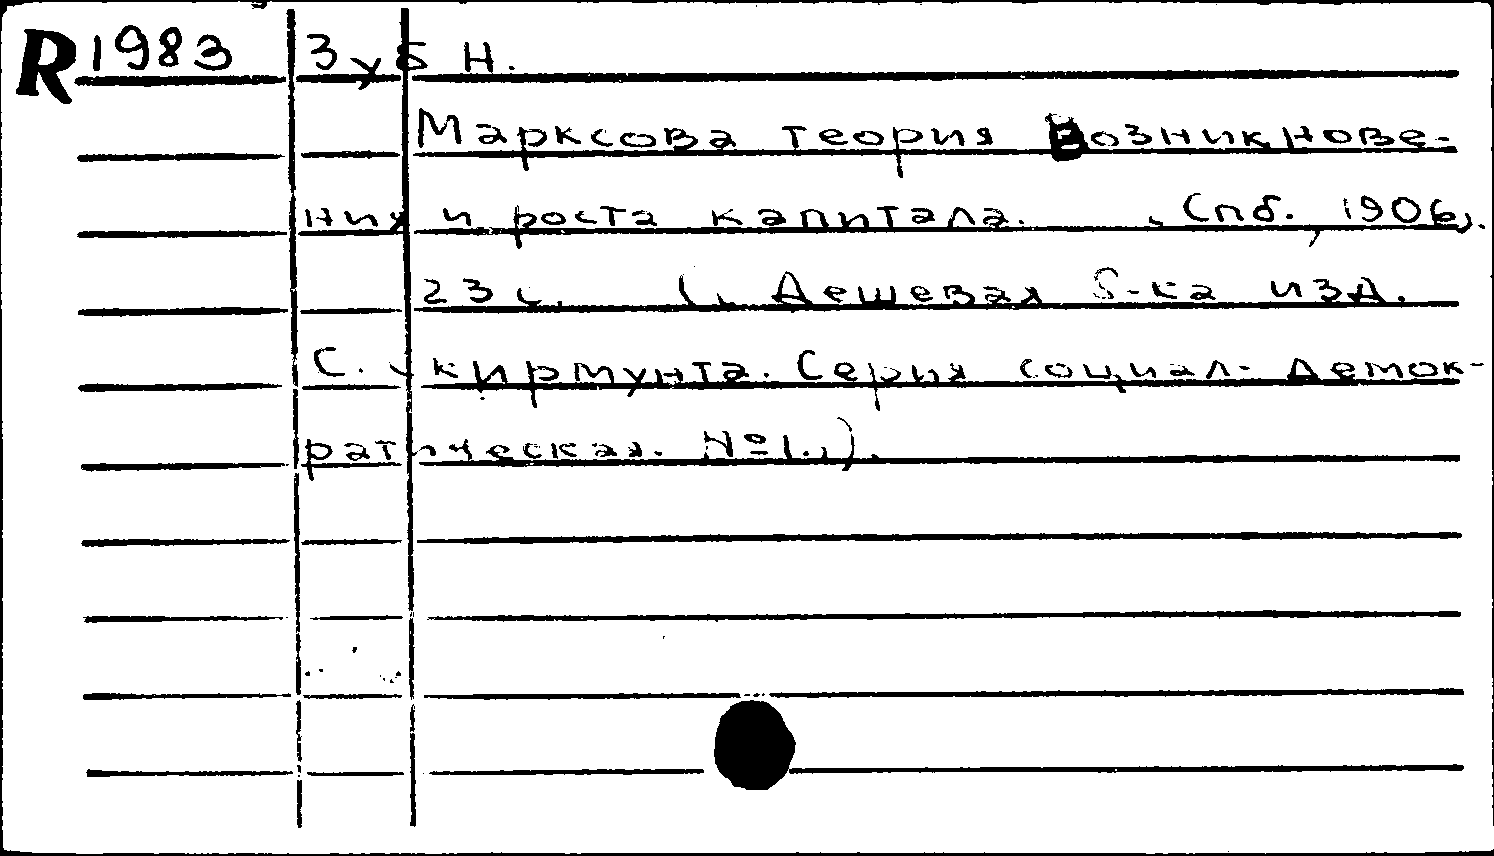 R1983 Зуб Н.
Марксова теория возникнове-
ния и роста капитала. Спб., 1906,
23 с. (Дешевая б-ка изд.
С. Скирмунта. Серия социал-демок-
ратическая. №1.).